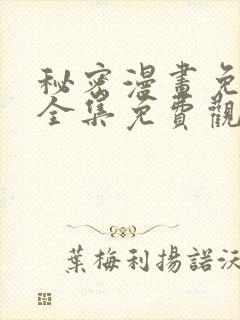 秘密漫畫免
全集免費觀
葉梅利揚諾沃